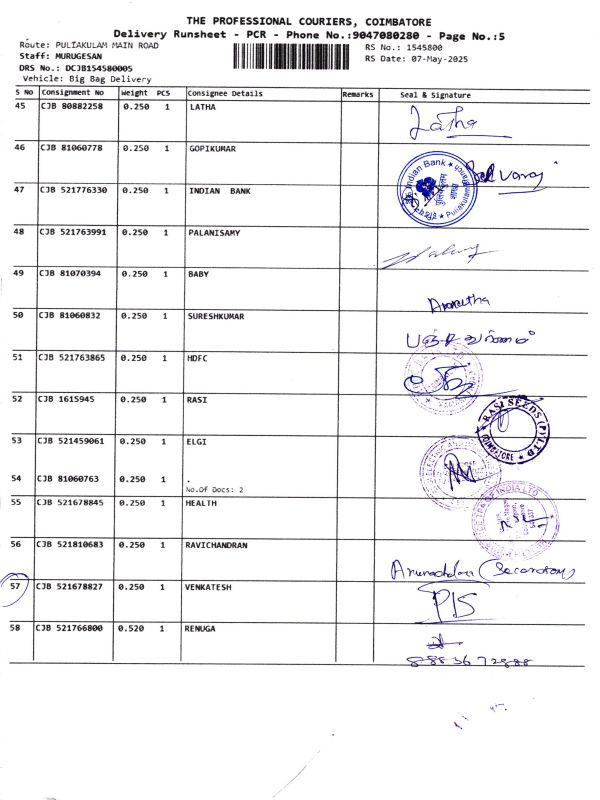 THE PROFESSIONAL COURIERS, COIMBATORE
Delivery Runsheet - PCR - Phone No.:9047080280 - Page No.:5
Route: PULIAKULAM MAIN ROAD
RS No.: 1545800
Staff: MURUGESAN
RS Date: 07-May-2025
DRS No.: DCJB154580005
Vehicle: Big Bag Delivery
S No Consignment No Weight PCS Consignee Details Remarks Seal & Signature
45 CJB 80882258 0.250 1 LATHA Latha
46 CJB 81060778 0.250 1 GOPIKUMAR
Indian Bank
Puliakulam
47 CJB 521776330 0.250 1 INDIAN BANK
48 CJB 521763991 0.250 1 PALANISAMY
49 CJB 81070394 0.250 1 BABY
50 CJB 81060832 0.250 1 SURESHKUMAR
51 CJB 521763865 0.250 1 HDFC
52 CJB 1615945 0.250 1 RASI
RASI SEEDS (P) LTD
COIMBATORE
53 CJB 521459061 0.250 1 ELGI
54 CJB 81060763 0.250 1 .
No.Of Docs: 2
55 CJB 521678845 0.250 1 HEALTH
56 CJB 521810683 0.250 1 RAVICHANDRAN
57 CJB 521678827 0.250 1 VENKATESH
58 CJB 521766800 0.520 1 RENUGA